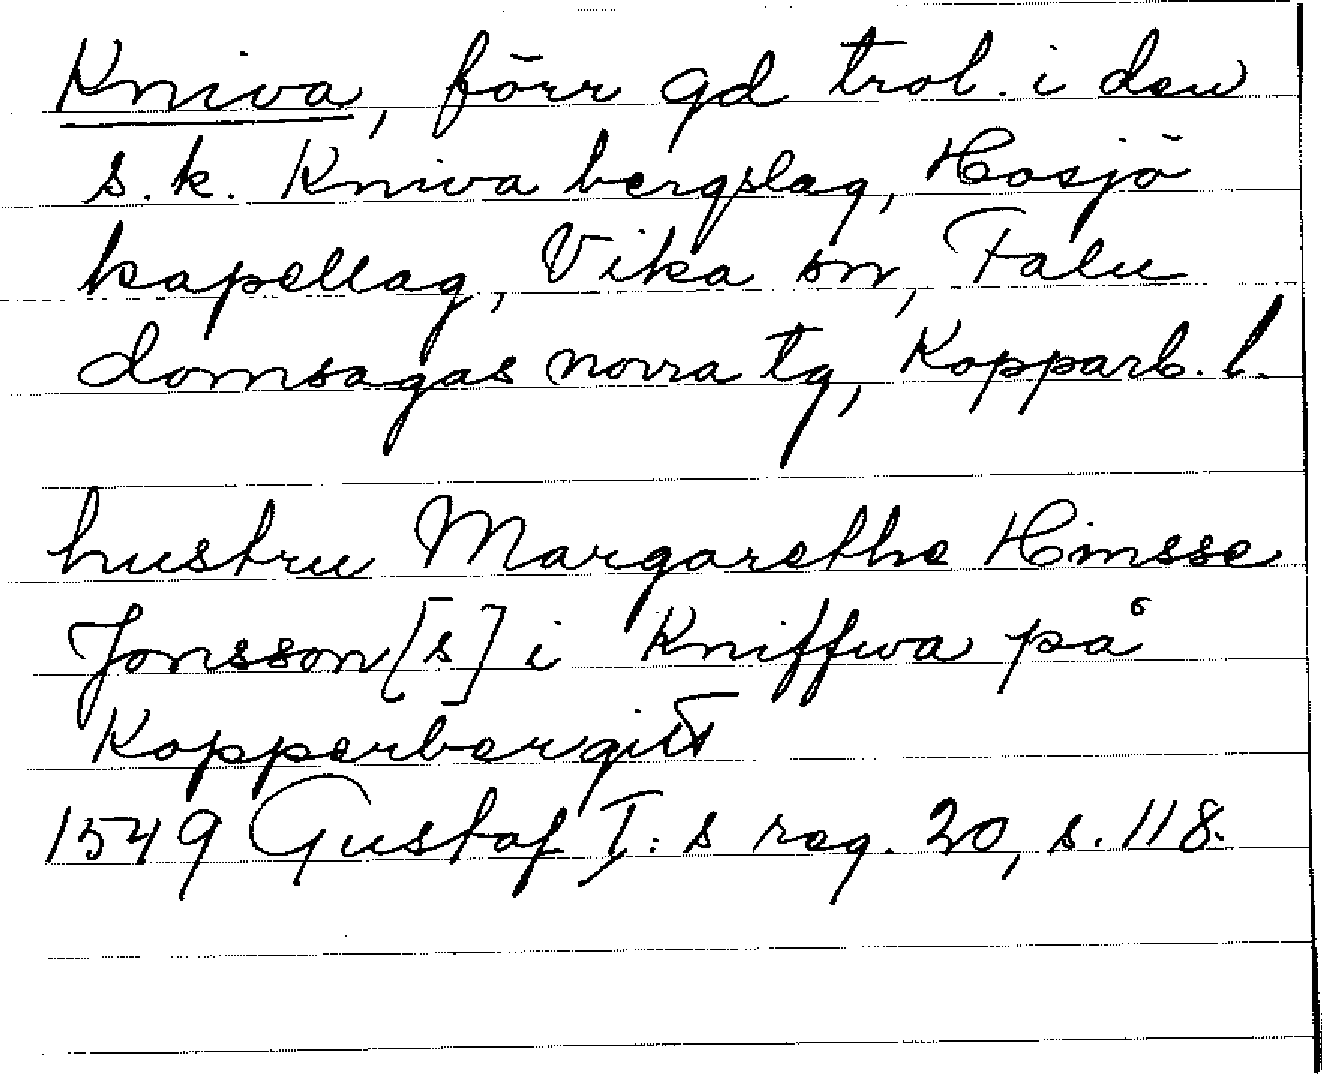 Kniva, förr gd trol. i den
s.k. Kniva bergslag, Hosjö
kapellag, Vika sn, Falu
domsagas norra tg, Kopparb. l.
hustru Margarethe Hinsse
Jonsson[s] i Kniffwa på
Kopperbergitt
1549 Gustaf I:s reg. 20, s. 118.